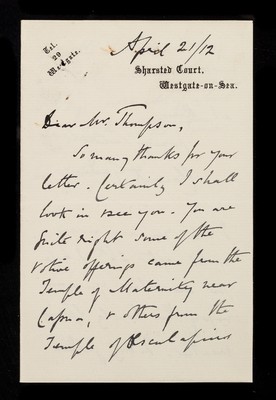 Tel.
29
Westgate.
April 21/12
Sharsted Court,
Westgate-on-Sea.
Dear Mr. Thompson,
So many thanks for your
letter. Certainly I shall
look in & see you. You are
quite right some of the
votive offerings came from the
Temple of Maternity near
Capua, & others from the
Temple of Æsculapius